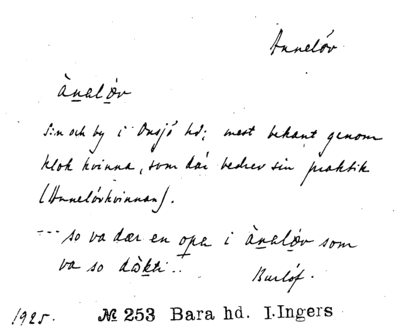 Annelöv
ànaløv
S:n och by i Onsjö hd; mest bekant genom
klok kvinna, som där bedrev sin praktik
(Annelövkvinnan).
--- so va dær en opa i ànaløv som
va so dòkti..
Burlöf.
1925. № 253 Bara hd. I.Ingers